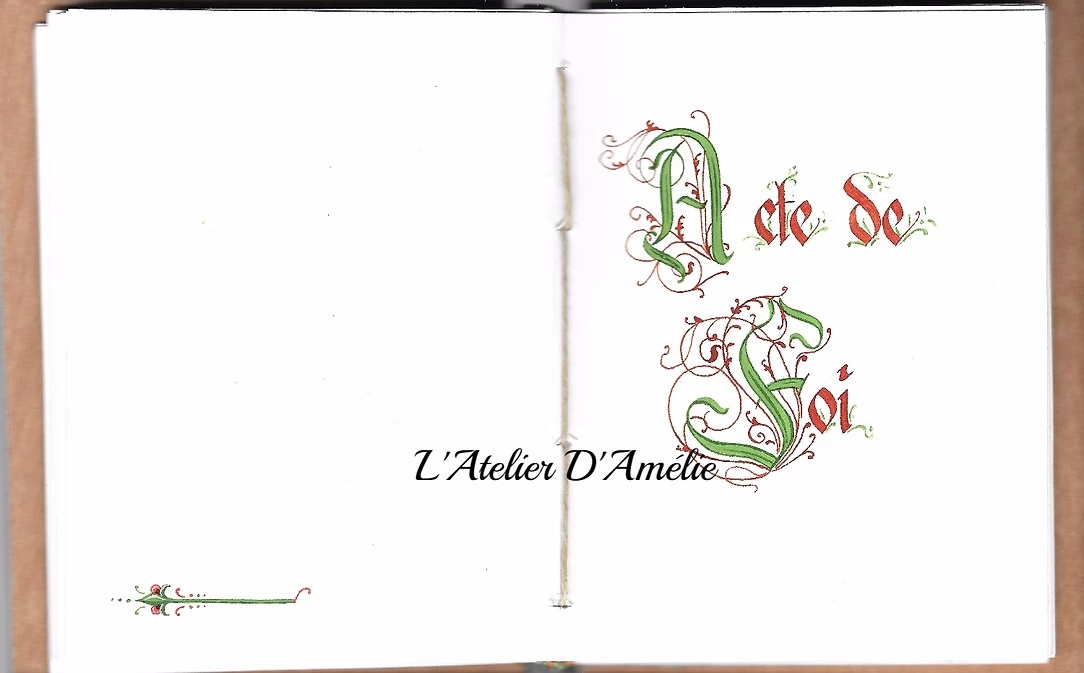 Acte de
Foi
L'Atelier D'Amélie